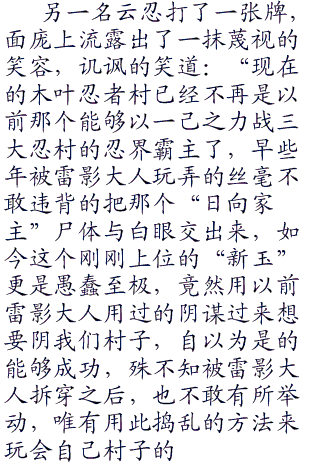 另一名云忍打了一张牌，
面庞上流露出了一抹蔑视的
笑容，讥讽的笑道：“现在
的木叶忍者村已经不再是以
前那个能够以一己之力战三
大忍村的忍界霸主了，早些
年被雷影大人玩弄的丝毫不
敢违背的把那个“日向家
主”尸体与白眼交出来，如
今这个刚刚上位的“新玉”
更是愚蠢至极，竟然用以前
雷影大人用过的阴谋过来想
要阴我们村子，自以为是的
能够成功，殊不知被雷影大
人拆穿之后，也不敢有所举
动，唯有用此捣乱的方法来
玩会自己村子的